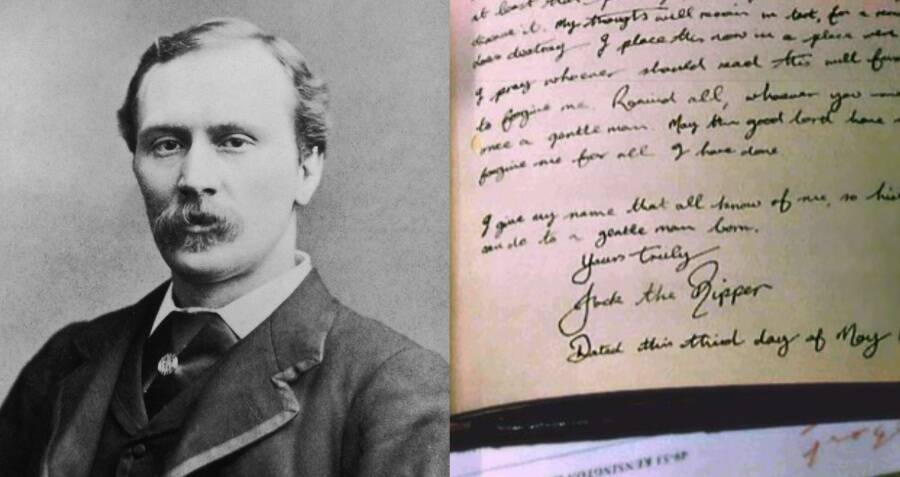 at least that
deserve it. My thoughts will remain in tact, for a
does destroy. I place this now in a place
I pray whoever should read this will
to forgive me. Remind all, whoever you
once a gentle man. May the good lord have
forgive me for all I have done
I give my name that all know of me, so
can do to a gentle man born.
Yours truly
Jack the Ripper
Dated this third day of May
49-51 KENSINGTON